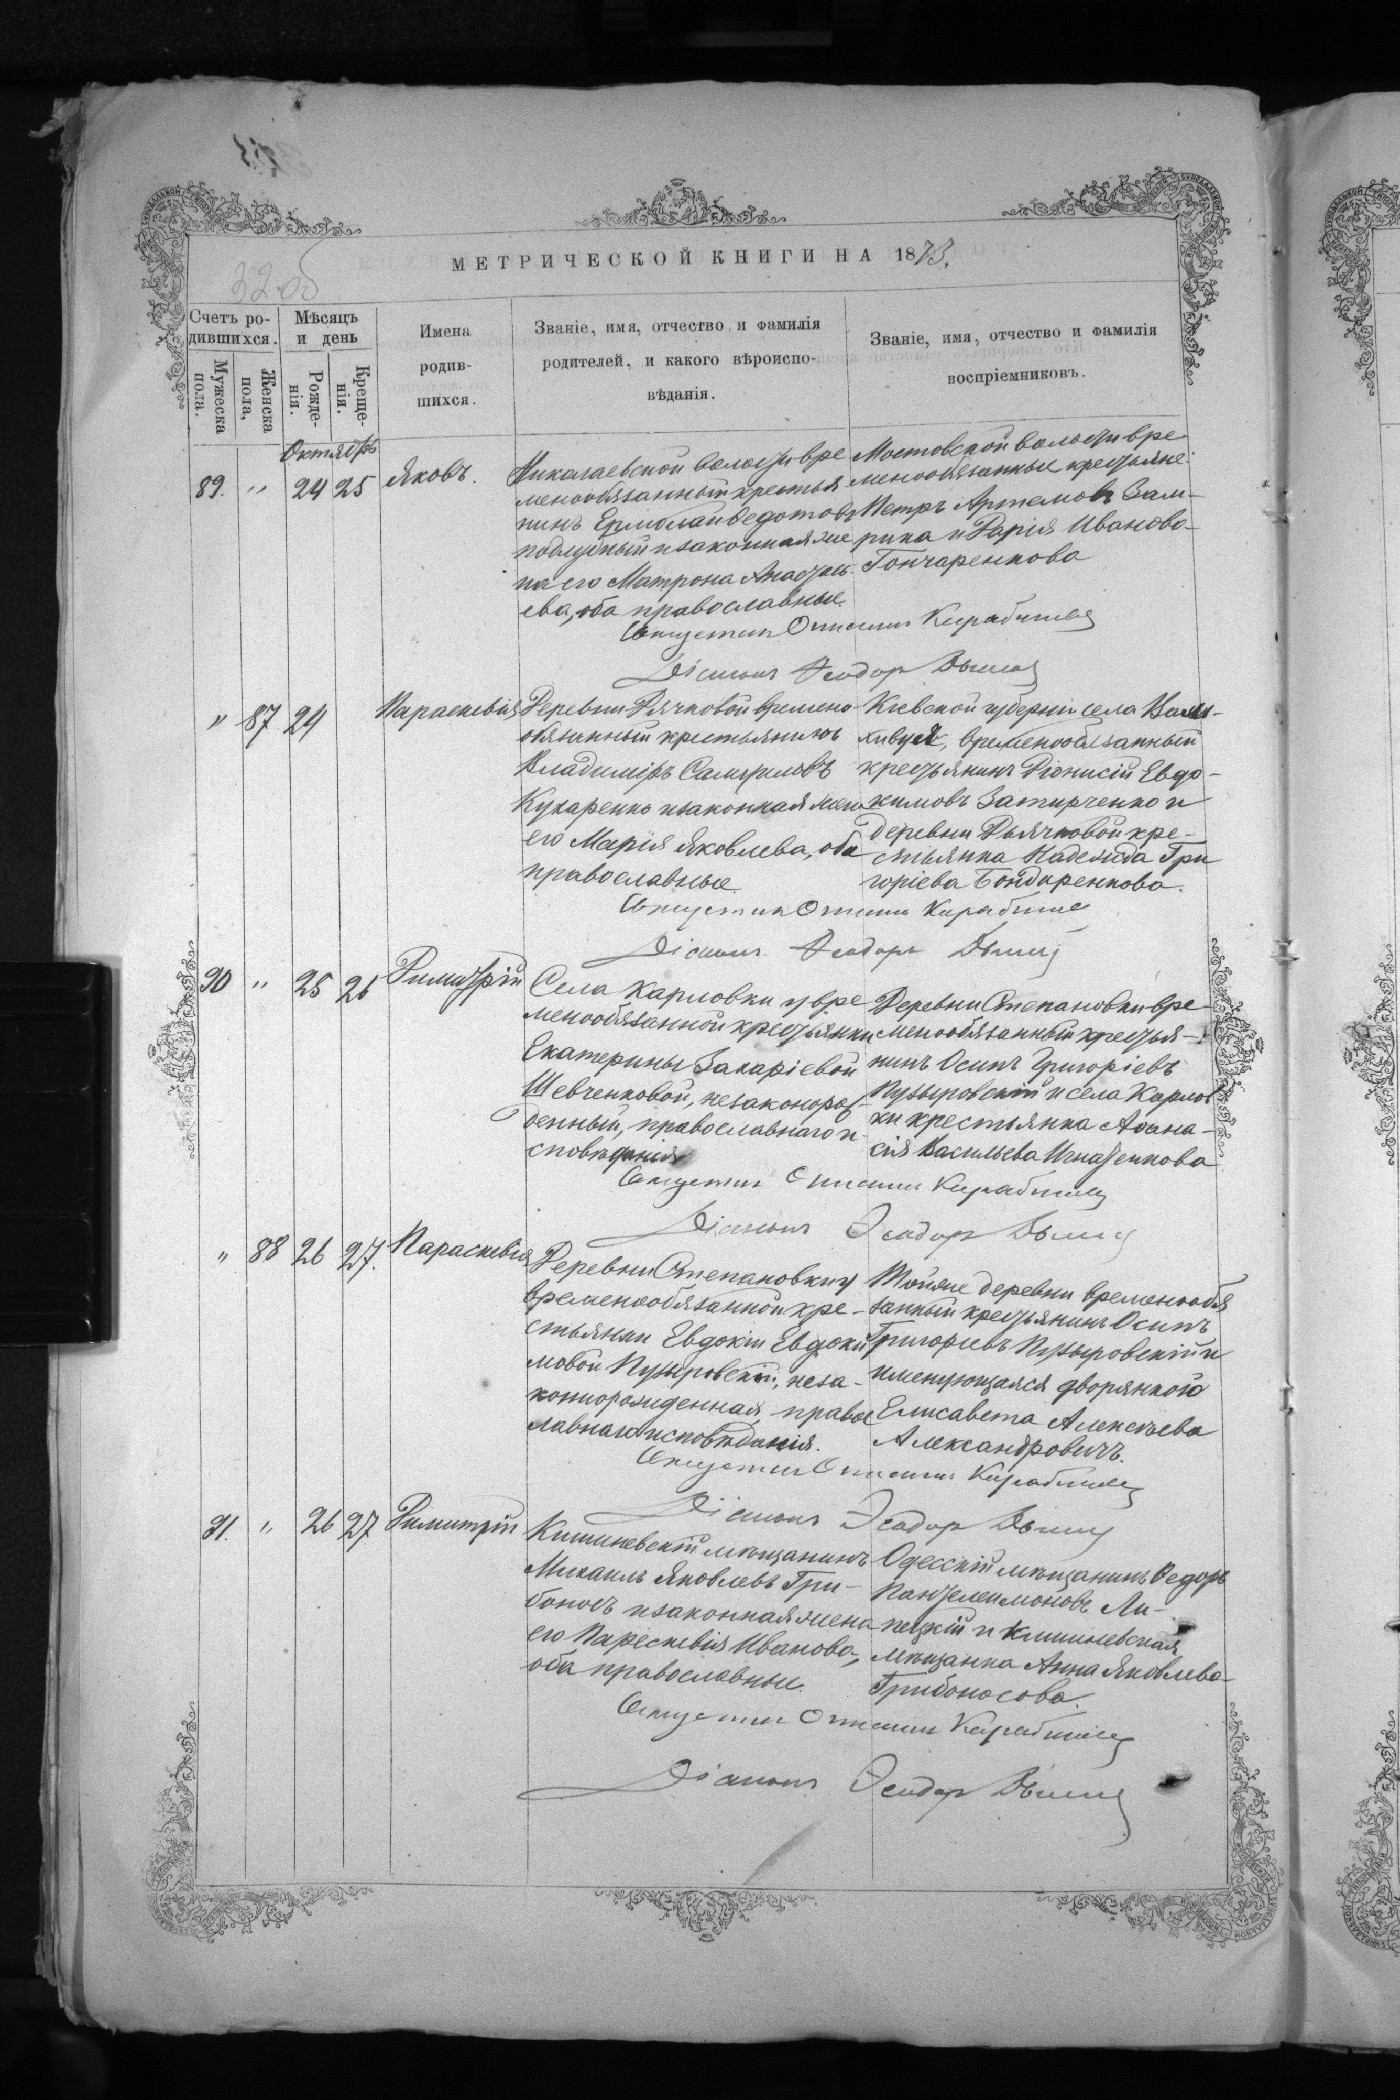 32 об
МЕТРИЧЕСКОЙ КНИГИ НА 1873.
Счетъ ро-
дившихся.
Мужеска
пола.
Женска
пола,
Мѣсяцъ
и день
Рожде-
нія.
Креще-
нія.
Имена
родив-
шихся.
Званіе, имя, отчество и фамилія
родителей, и какого вѣроиспо-
вѣданія.
Званіе, имя, отчество и фамилія
воспріемниковъ.
Октябрь
89. " 24 25 Яковъ.
Николаевской волости вре
менообязанный крестья
нинъ Ермолай Ѳедотовъ
и законная же
на его Матрона
ева, оба православные.
Мостовской волости вре
менообязанные крестьяне:
Петръ Артемовъ Зам-
рика и Дарія Иванова
Гончаренкова
Діаконъ Ѳеодоръ
" 87 24 Параскевія
Деревни Дячковой времено
обязанный крестьянинъ
Владиміръ Самуиловъ
Кухаренко и законная жена
его Марія Яковлева, оба
православные.
Кіевской губерніи села
временообязанный
крестьянинъ Діонисій Евдо-
кимовъ и
деревни Дьячковой кре-
стьянка Надежда Гри
горіева Бондаренкова.
Діаконъ Ѳеодоръ
90 " 25 26 Димитрій
Села Карловки у вре
менообязанной крестьянки
Екатерины Захаріевой
Шевченковой, незаконорож
денный, православнаго и-
сповѣданія
Деревни Степановки вре-
менообязанный крестья-
нинъ Осипъ Григоріевъ
Пузыровскій и села Карлов
ки крестьянка Аѳана-
сія Васильева Игнатенкова
Діаконъ Ѳеодоръ
" 88 26 27. Параскевія
Деревни Степановки у
временообязанной кре-
стьянки Евдокіи Евдоки
мовой Пузыровской, неза-
коннорожденная, правос
лавнаго исповѣданія.
Тойже деревни временообя
занный крестьянинъ Осипъ
Григоріевъ Пузыровскій и
именующаяся дворянкою
Елисавета Алексѣева
Александровичъ.
Діаконъ Ѳеодоръ
91. " 26 27 Димитрій
Кишиневскій мѣщанинъ
Михаилъ Яковлевъ Гри-
боносъ и законная жена
его Параскевія Иванова,
оба православные.
Одесскій мѣщанинъ Ѳедоръ
Пантелеимоновъ Ли-
пецкій и Кишиневская
мѣщанка Анна Яковлева
Грибоносова.
Діаконъ Ѳеодоръ